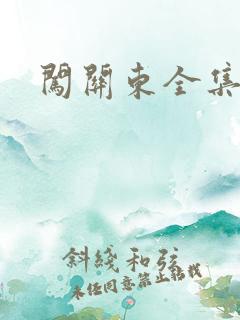 闖關東全集
斜綫和弦
未经同意禁止转载